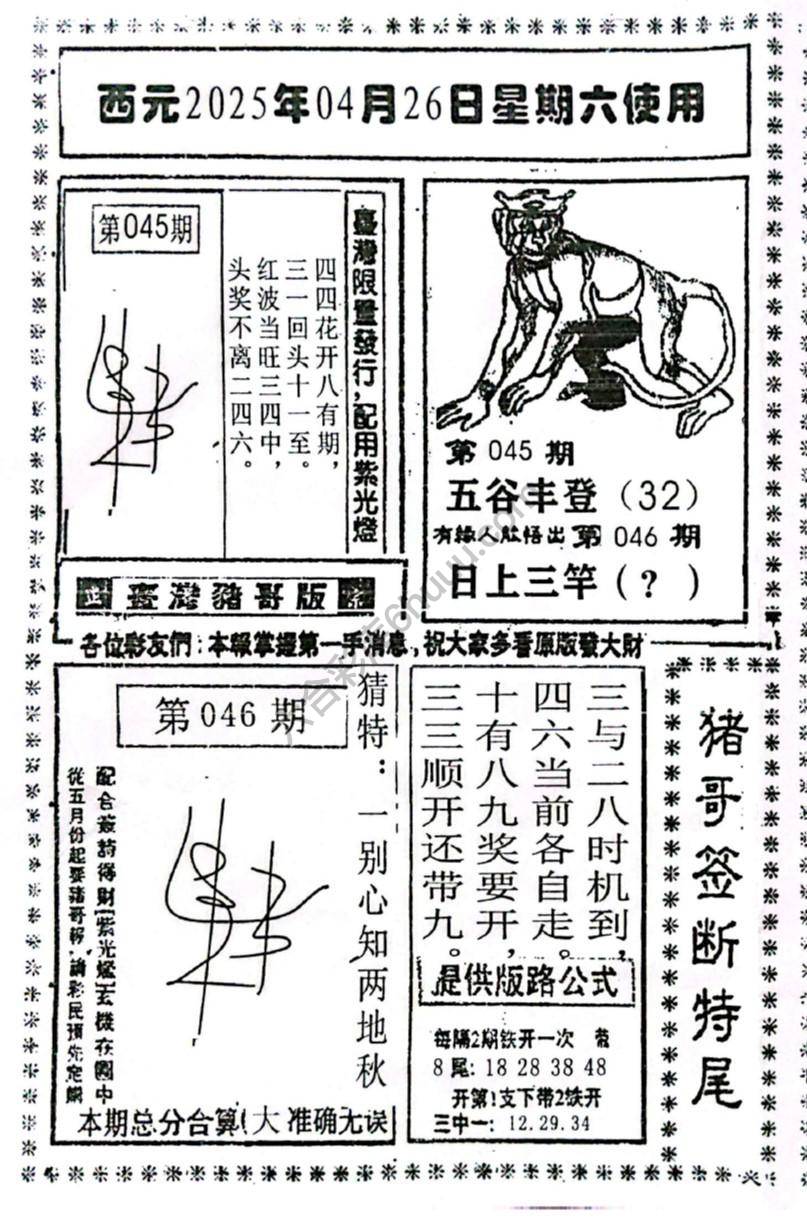 西元2025年04月26日星期六使用
第045期
四四花开八有期,
三一回头十一至。
红波当旺三四中,
头奖不离二四六。
臺灣限量發行,配用紫光燈
第 045 期
五谷丰登（32）
有緣人敁悟出 第 046 期
日上三竿（？）
臺灣豬哥版
各位彩友們:本報掌握第一手消息,祝大家多看原版發大財
第 046 期
猜特：一别心知两地秋
配合叢詩得財[紫光燈]玄機在圖中
從五月份起要豬哥報,請彩民預先定購
本期总分合算(大 准确无误
三与二八时机到,
四六当前各自走。
十有八九奖要开,
三三顺开还带九。
提供版路公式
每隔2期铁开一次 带
8尾: 18 28 38 48
开第1支下带2铁开
三中一: 12.29.34
猪哥签断特尾
六合彩库6huuu.com